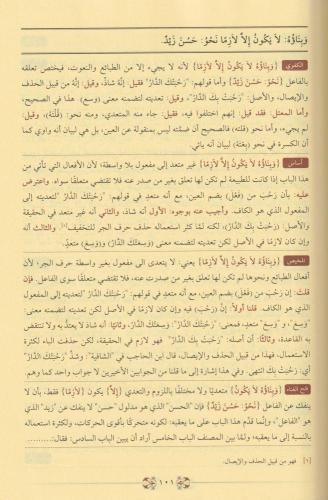 وَبِنَاؤُهُ: لاَ يَكُونُ إِلاَّ لاَزِمًا نَحْوُ: حَسُنَ زَيْدٌ.
الكفوي {وَبِنَاؤُهُ لاَ يَكُونُ إِلاَّ لاَزِمًا} لأنه لا يجيء إلا من الطبائع والنعوت، فيختص تعلقه
بالفاعل {نَحْوُ: حَسُنَ زَيْدٌ} وأما قولهم: "رَحُبَتْكَ الدَّارُ" فقيل: إنَّهُ شاذٌ، وقيل: إنَّهُ من قبيل الحذف
والإيصال، والأصل: "رَحُبَتْ بِكَ الدَّارُ"، وقيل: تعديته لتضمنه معنى (وسع) هذا في الصحيح،
وأما المعتل: فقد قيل: إنهم اختلفوا فيه، فقيل: جاء منه المتعدي، ومنه نحو: (قُلْتُهُ)، وقيل:
لم يجيء، وأما نحو (قلته) فالصحيح أن ضمته ليس بمنقولة عن العين، بل هي لبيان أنه واوي كما
أن الكسرة في نحو (بعته) لبيان أنه يائي.
أساس {وَبِنَاؤُهُ لاَ يَكُونُ إِلاَّ لاَزِمًا} غير متعد إلى مفعول بلا واسطة؛ لأن الأفعال التي تأتي من
هذا الباب إذا كانت للطبيعة لم تكن لها تعلق بغير من صدر عنه فلا تقتضي متعلقًا سواه. واعترض
عليه: بأن رَحُبَ من (فَعُلَ) بضم العين، مع أنه متعد في قولهم: "رَحُبَتْكَ الدَّارُ" لتعديته إلى
المفعول الذي هو الكاف. وأجيب عنه بوجوه: الأول أنه شاذ. والثاني أنه غير متعد في الحقيقة
والأصل: (رَحُبَتْ بِكَ الدَّارُ)، لكنه لما كثر استعماله حذف حرف الجر للتخفيف[١]. والثالث أنه
وإن كان لازمًا في الأصل لكن تعديته لتضمنه معنى (وَسِعَتْكَ الدَّارُ) و(وَسِعَ) متعدٍّ.
تلخيص {وَبِنَاؤُهُ لاَ يَكُونُ إِلاَّ لاَزِمًا} يعني: لا يتعدى إلى مفعول بغير واسطة حرف الجر؛ لأن
أفعال الطبائع ونحوها لم تكن لها تعلق بغير من صدرت عنه، فلا تقتضي متعلقًا سوى الفاعل. فإن
قلت: إن رَحُبَ من (فَعُلَ) بضم العين، مع أنه متعد في قولهم: "رَحُبَتْكَ الدَّارُ" لتعديته إلى المفعول
الذي هو الكاف. قلنا أولاً: إنَّ (رَحُبَ) فيه وإن كان لازمًا في الأصل لكن تعديته لتضمنه معنى
"وَسِعَ"، و"وَسِعَ" متعد، فمعنى: "رَحُبَتْكَ الدَّارُ": وَسِعَتْكَ الدَّارُ، وثانيًا: أنه شاذ لا يعتدُّ به ولا تنتقض به
القاعدة، وثالثًا: أن أصله: "رَحُبَتْ بِكَ الدَّارُ" فهو لازم في الحقيقة، لكن حذفت الباء لكثرة
الاستعمال، فهذا من قبيل الحذف والإيصال، قال ابن الحاجب في "الشافية": وشذَّ "رَحُبَتْكَ الدَّارُ"
أي: رَحُبَتْ بك انتهى. وفي هذا إشارة إلى ما قلنا من الجوابين الأخيرين لا جواب واحد كما وهم
فتح القناء {وَبِنَاؤُهُ لاَ يَكُونُ} متعديًا ولا مختلفًا باللزوم والتعدي {إِلاَّ} يكون {لاَزِمًا} فقط، بأن لا
ينفك عن الفاعل {نَحْوُ: حَسُنَ زَيْدٌ} فإن "الحسن" الذي هو مدلول "حسن" لا ينفك عن "زيد" الذي هو
هو "الفاعل"، وإنما قدَّم هذا الباب على ما يعقبه؛ لكونه متحركًا بأقوى الحركات، ولكثرة استعماله
بالنسبة إلى ما يعقبه؛ ولمَّا بين المصنف الباب الخامس أراد أن يبين الباب السادس، فقال: ......
[١] فهو من قبيل الحذف والإيصال.
١٠١